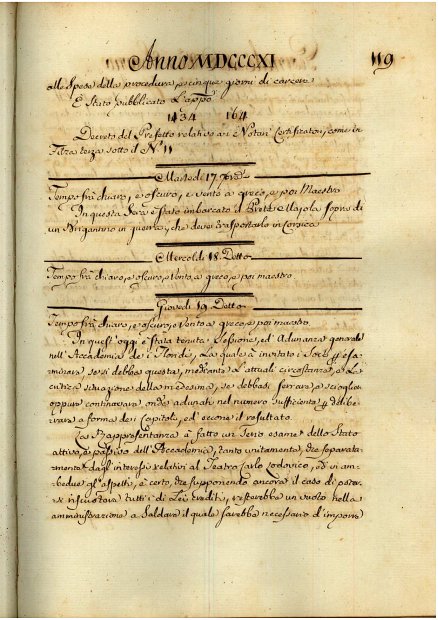 Anno MDCCCXI
119
alle Spese della procedura, e cinque giorni di carcere
È Stato pubblicato l'app.º
1434 164
Decreto del Prefetto relativo ai Notari Certificatori, come in
Filza terza sotto di N. 11
Martedì 17. 7bre
Tempo frà chiaro, e oscuro, e vento a greco, e poi Maestro
In questa Sera è stato imbarcato il Prete Majola sopra di
un Brigantino in guerra, che deve trasportarlo in Corsica
Mercoledì 18. Detto
Tempo frà chiaro, e oscuro, e Vento, a greco, e poi maestro
Giovedì 19. Detto
Tempo frà chiaro, e oscuro, e Vento a greco, e poi maestro.
In quest'oggi è stata tenuta Sessione, ed Adunanza generale
nell'Accademia de i Floridi, La quale à invitati i Socj p esa-
minare se si debba questa, mediante Le attuali circostanze, e La
critica situazione della medesima, se debbasi serrare, o sciogliere
oppure continovare, onde adunati nel numero sufficiente p delibe-
rare a forma dei Capitoli, ed' eccone il resultato.
La Rappresentanza à fatto un Serio esame dello Stato
attivo, e passivo dell'Accademia, tanto unitamente, che separata-
mente dagl'interessi relativi al Teatro Carlo Lodovico, ed in am-
bedue gl'aspetti, è certo, che supponendo ancora il caso di poter
riscuotere tutti i di Lei crediti, resterebbe un vuoto nella
amministrazione a Saldare il quale sarebbe necessario d'imporre